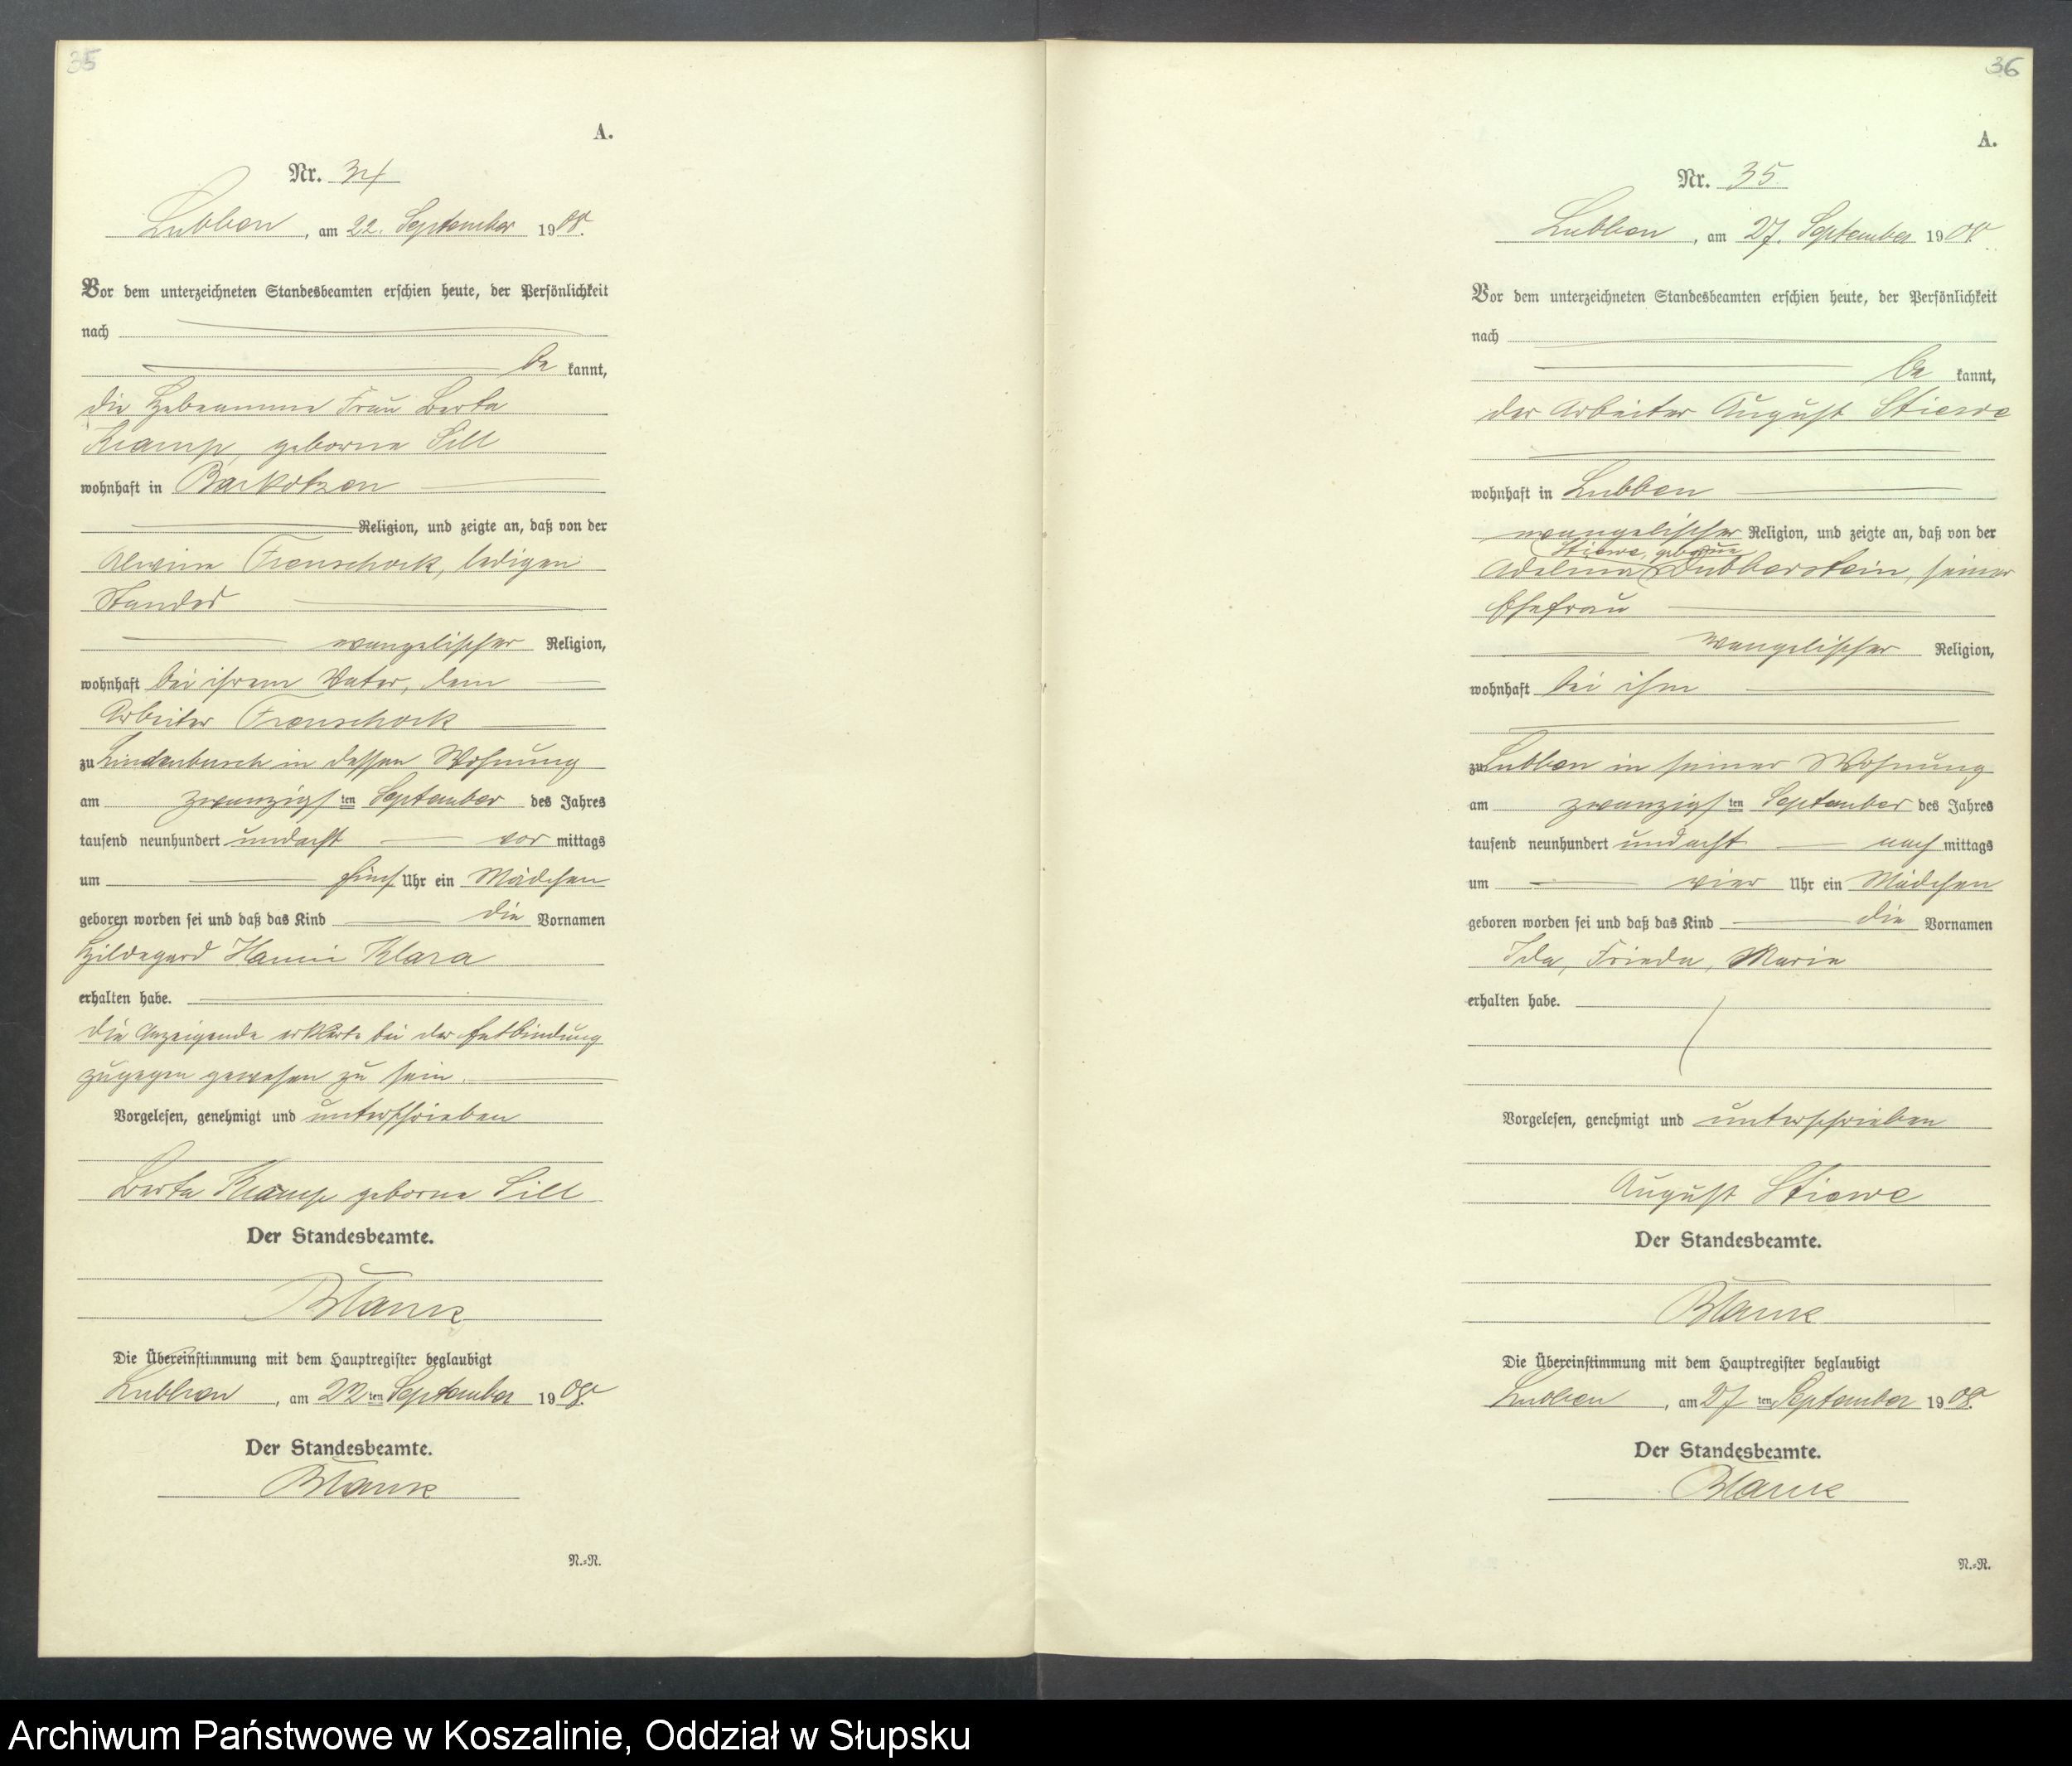 35
A.
Nr. 34
Lubben, am 22. September 1908.
Vor dem unterzeichneten Standesbeamten erschien heute, der Persönlichkeit
nach
be kannt,
die Hebeamme Frau Berta
Kramp, geborne Sill
wohnhaft in Barkotzen
Religion, und zeigte an, daß von der
Alwine Tronschock, ledigen
Standes
evangelischer Religion,
wohnhaft bei ihrem Vater, dem
Arbeiter Tronschock
zu Lindenbusch in dessen Wohnung
am zwanzigsten September des Jahres
tausend neunhundert und acht vor mittags
um fünf Uhr ein Mädchen
geboren worden sei und daß das Kind die Vornamen
Hildegard Hanni Klara
erhalten habe.
Die Anzeigende erklärte bei der Entbindung
zugegen gewesen zu sein.
Vorgelesen, genehmigt und unterschrieben
Berta Kramp geborne Sill
Der Standesbeamte.
Blank
Die Übereinstimmung mit dem Hauptregister beglaubigt
Lubben, am 22ten September 1908.
Der Standesbeamte.
Blank
N.=R.
36
A.
Nr. 35
Lubben, am 27. September 1908.
Vor dem unterzeichneten Standesbeamten erschien heute, der Persönlichkeit
nach
be kannt,
der Arbeiter August Stiewe
wohnhaft in Lubben
evangelischer Religion, und zeigte an, daß von der
Stiewe, geborne
Adeline Dubberstein, seiner
Ehefrau
evangelischer Religion,
wohnhaft bei ihm
zu Lubben in seiner Wohnung
am zwanzigsten September des Jahres
tausend neunhundert und acht nach mittags
um vier Uhr ein Mädchen
geboren worden sei und daß das Kind die Vornamen
Ida, Frieda, Marie
erhalten habe.
Vorgelesen, genehmigt und unterschrieben
August Stiewe
Der Standesbeamte.
Blank
Die Übereinstimmung mit dem Hauptregister beglaubigt
Lubben, am 27 ten September 1908.
Der Standesbeamte.
Blank
N.=R.
Archiwum Państwowe w Koszalinie, Oddział w Słupsku